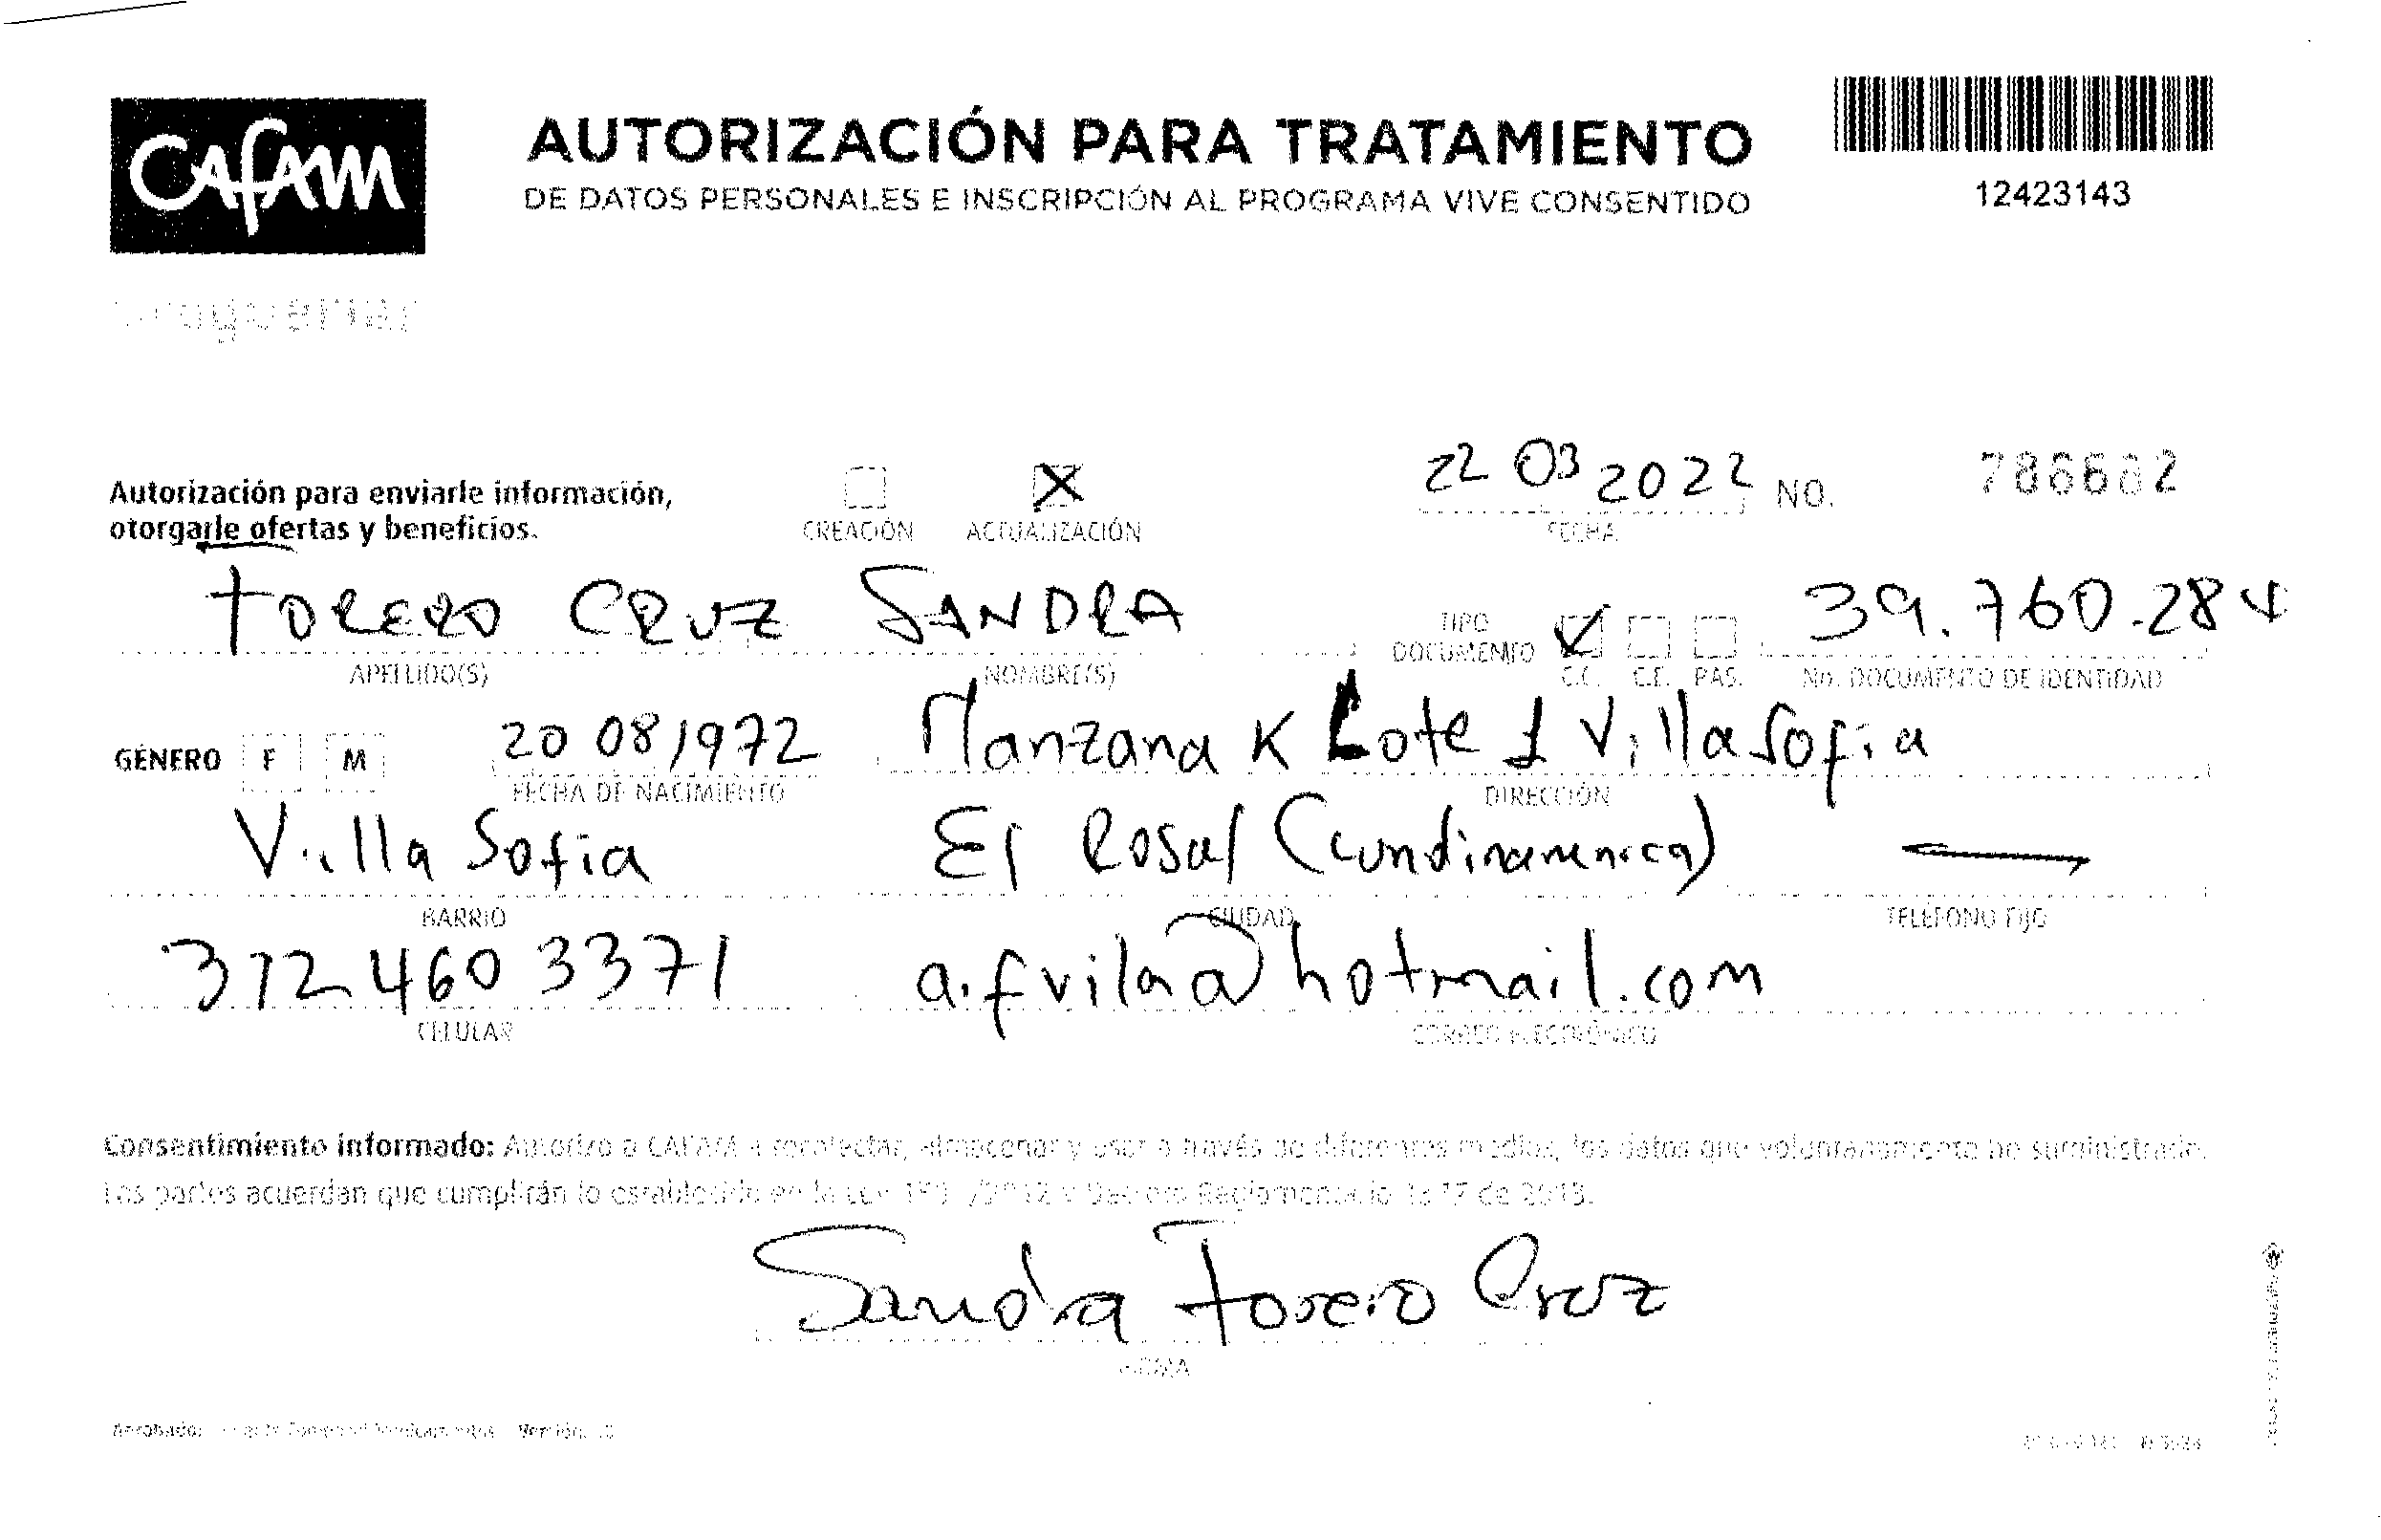 Cafam
AUTORIZACIÓN PARA TRATAMIENTO
DE DATOS PERSONALES E INSCRIPCIÓN AL PROGRAMA VIVE CONSENTIDO
12423143
Autorización para enviarle información,
otorgarle ofertas y beneficios.
CREACIÓN
ACTUALIZACIÓN
22 03 2022
FECHA
NO.
786682
FORERO CRUZ SANDRA
APELLIDO(S)
NOMBRE(S)
TIPO
DOCUMENTO
C.C. C.E. PAS.
39.760.284
No. DOCUMENTO DE IDENTIDAD
GÉNERO F M
20 08 1972
FECHA DE NACIMIENTO
Manzana K Lote 1 Villa Sofia
DIRECCIÓN
Villa Sofia
BARRIO
El Rosal (Cundinamerica)
CIUDAD
TELÉFONO FIJO
312 460 3371
CELULAR
a.fvila@hotmail.com
CORREO ELECTRÓNICO
Consentimiento informado: Autorizo a CAFAM a recolectar, almacenar y usar a través de diferentes medios, los datos que voluntariamente he suministrado.
Las partes acuerdan que cumplirán lo establecido en la Ley /2012 y Decreto Reglamentario de 2013.
Sandra Forero Cruz
FIRMA
Aprobado:
Versión: